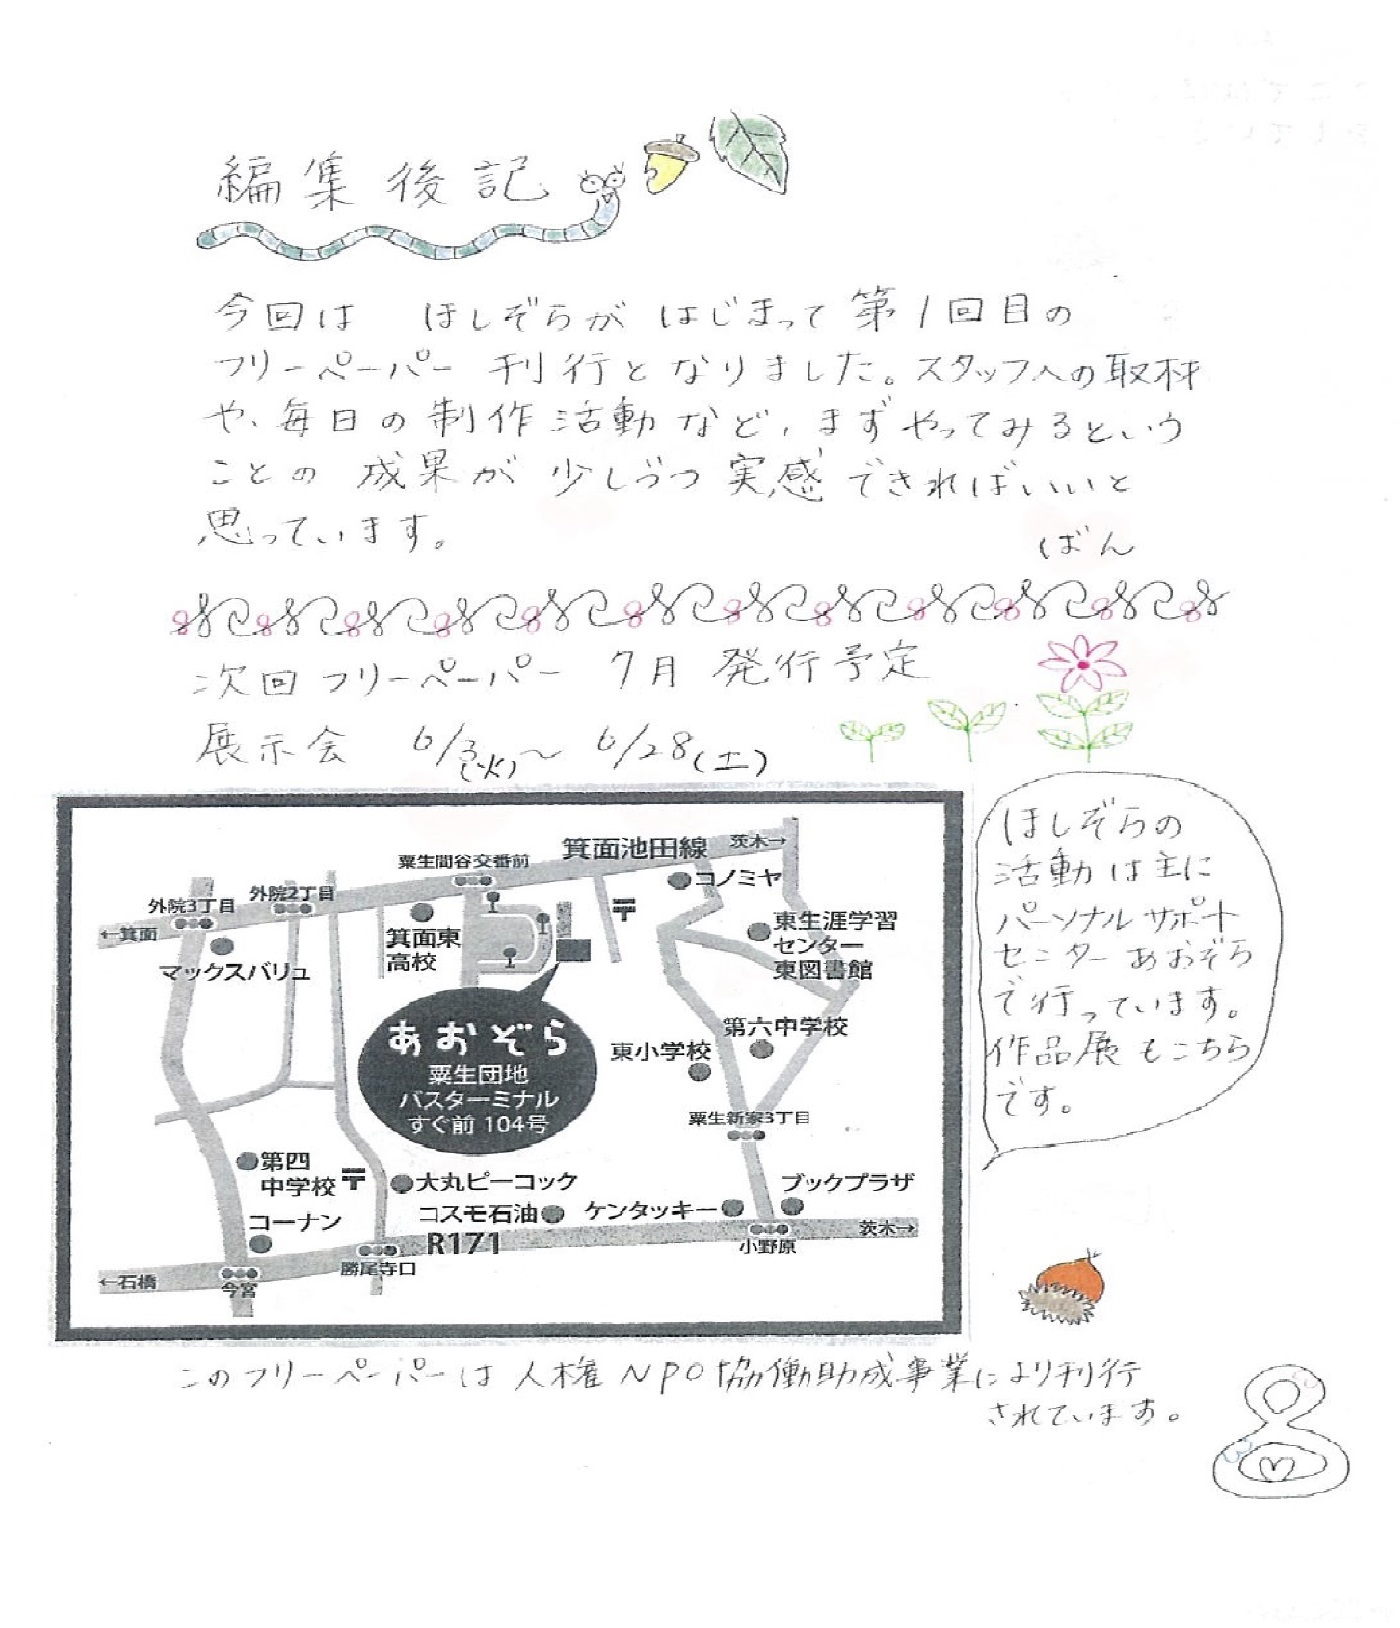 編集後記
今回は ほしぞらが はじまって 第1回目の
フリーペーパー 刊行となりました。スタッフへの取材
や、毎日の制作活動など、まずやってみるという
ことの 成果が 少しづつ 実感できればいいと
思っています。
ばん
次回フリーペーパー 7月 発行予定
展示会 6/3(火)〜 6/28(土)
箕面池田線
茨木→
粟生間谷交番前
コノミヤ
外院2丁目
外院3丁目
←箕面
マックスバリュ
箕面東
高校
〒
東生涯学習
センター
東図書館
あおぞら
粟生団地
バスターミナル
すぐ前 104号
第六中学校
東小学校
粟生新家3丁目
第四
中学校
〒
大丸ピーコック
ブックプラザ
コーナン
コスモ石油
ケンタッキー
R171
小野原
茨木→
勝尾寺口
←石橋
今宮
ほしぞらの
活動は主に
パーソナルサポート
センターあおぞら
で行っています。
作品展もこちら
です。
このフリーペーパーは 人権NPO協働助成事業により刊行
されています。